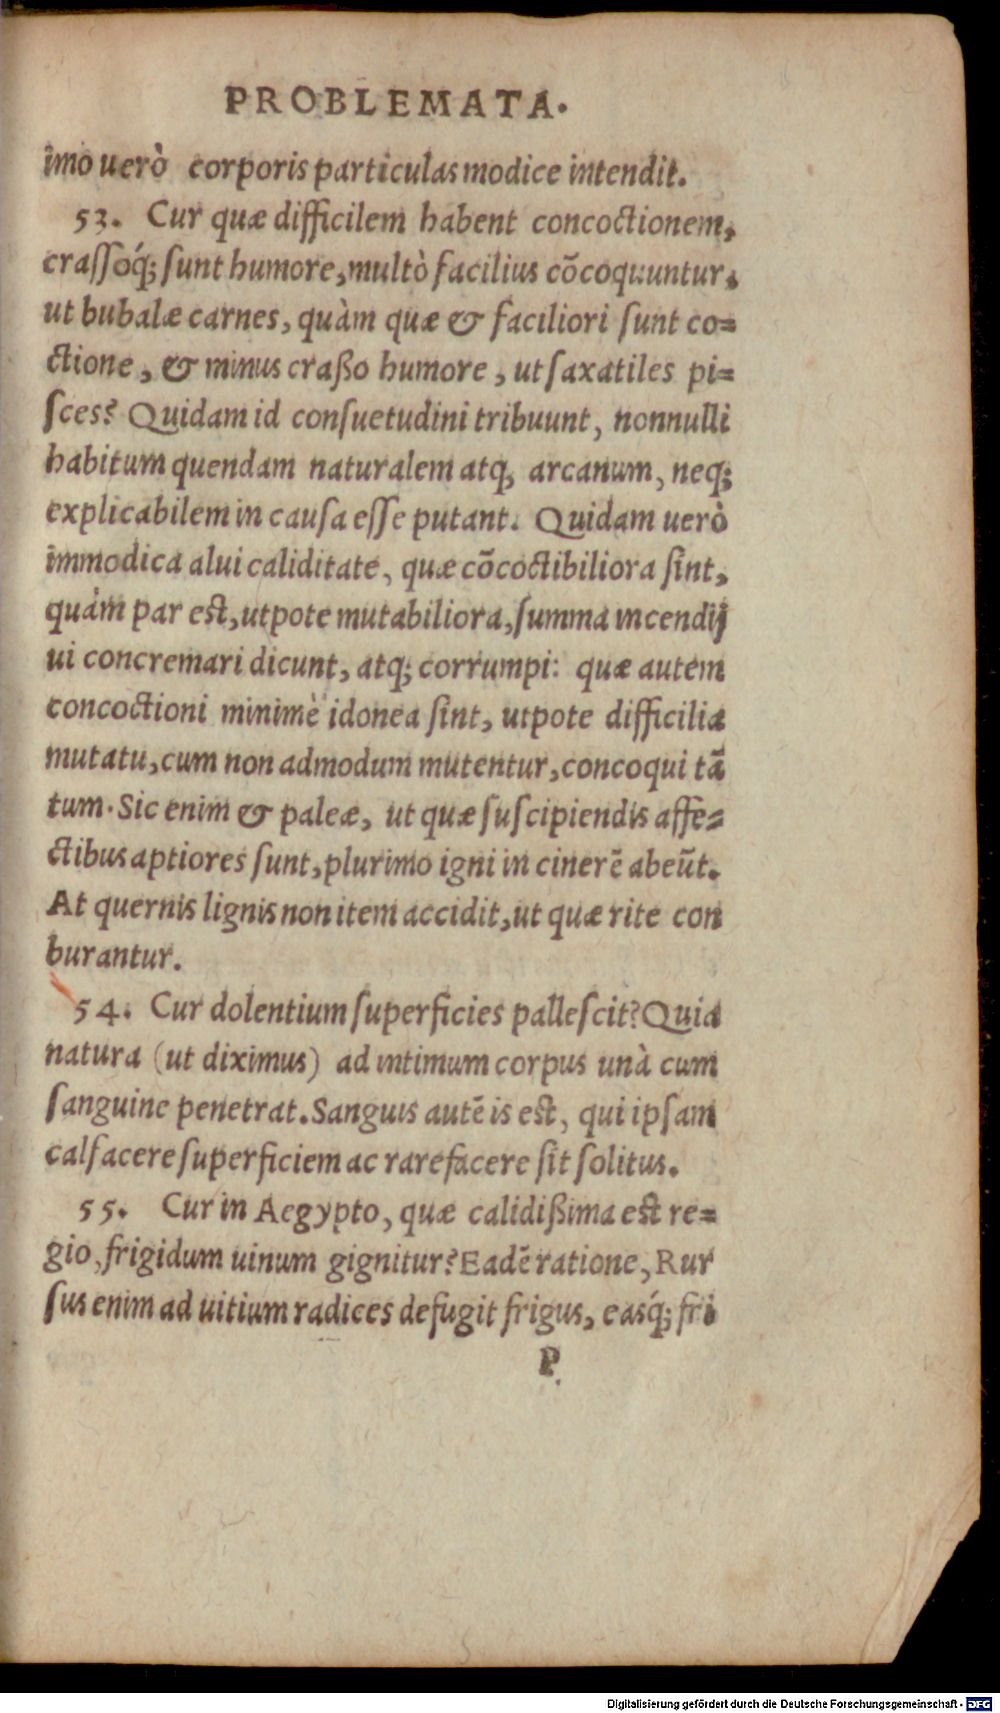 PROBLEMATA.
imo uerò corporis particulas modice intendit.
53. Cur quæ difficilem habent concoctionem,
crassoq́; sunt humore, multò facilius cōcoquuntur,
ut bubalæ carnes, quàm quæ & faciliori sunt co=
ctione, & minus craßo humore, ut saxatiles pi=
sces? Quidam id consuetudini tribuunt, nonnulli
habitum quendam naturalem atq, arcanum, neq;
explicabilem in causa esse putant. Quidam uerò
immodica alui caliditate, quæ cōcoctibiliora sint,
quàm par est, utpote mutabiliora, summa incendij
ui concremari dicunt, atq; corrumpi: quæ autem
concoctioni minimè idonea sint, utpote difficilia
mutatu, cum non admodum mutentur, concoqui tā
tum. Sic enim & paleæ, ut quæ suscipiendis affe=
ctibus aptiores sunt, plurimo igni in cinerē abeūt.
At quernis lignis non item accidit, ut quæ rite con
burantur.
54. Cur dolentium superficies pallescit? Quia
natura (ut diximus) ad intimum corpus unà cum
sanguine penetrat. Sanguis autē is est, qui ipsam
calfacere superficiem ac rarefacere sit solitus.
55. Cur in Aegypto, quæ calidißima est re=
gio, frigidum uinum gignitur? Eadē ratione, Rur
sus enim ad uitium radices defugit frigus, easq́; fri
P
Digitalisierung gefördert durch die Deutsche Forschungsgemeinschaft - DFG